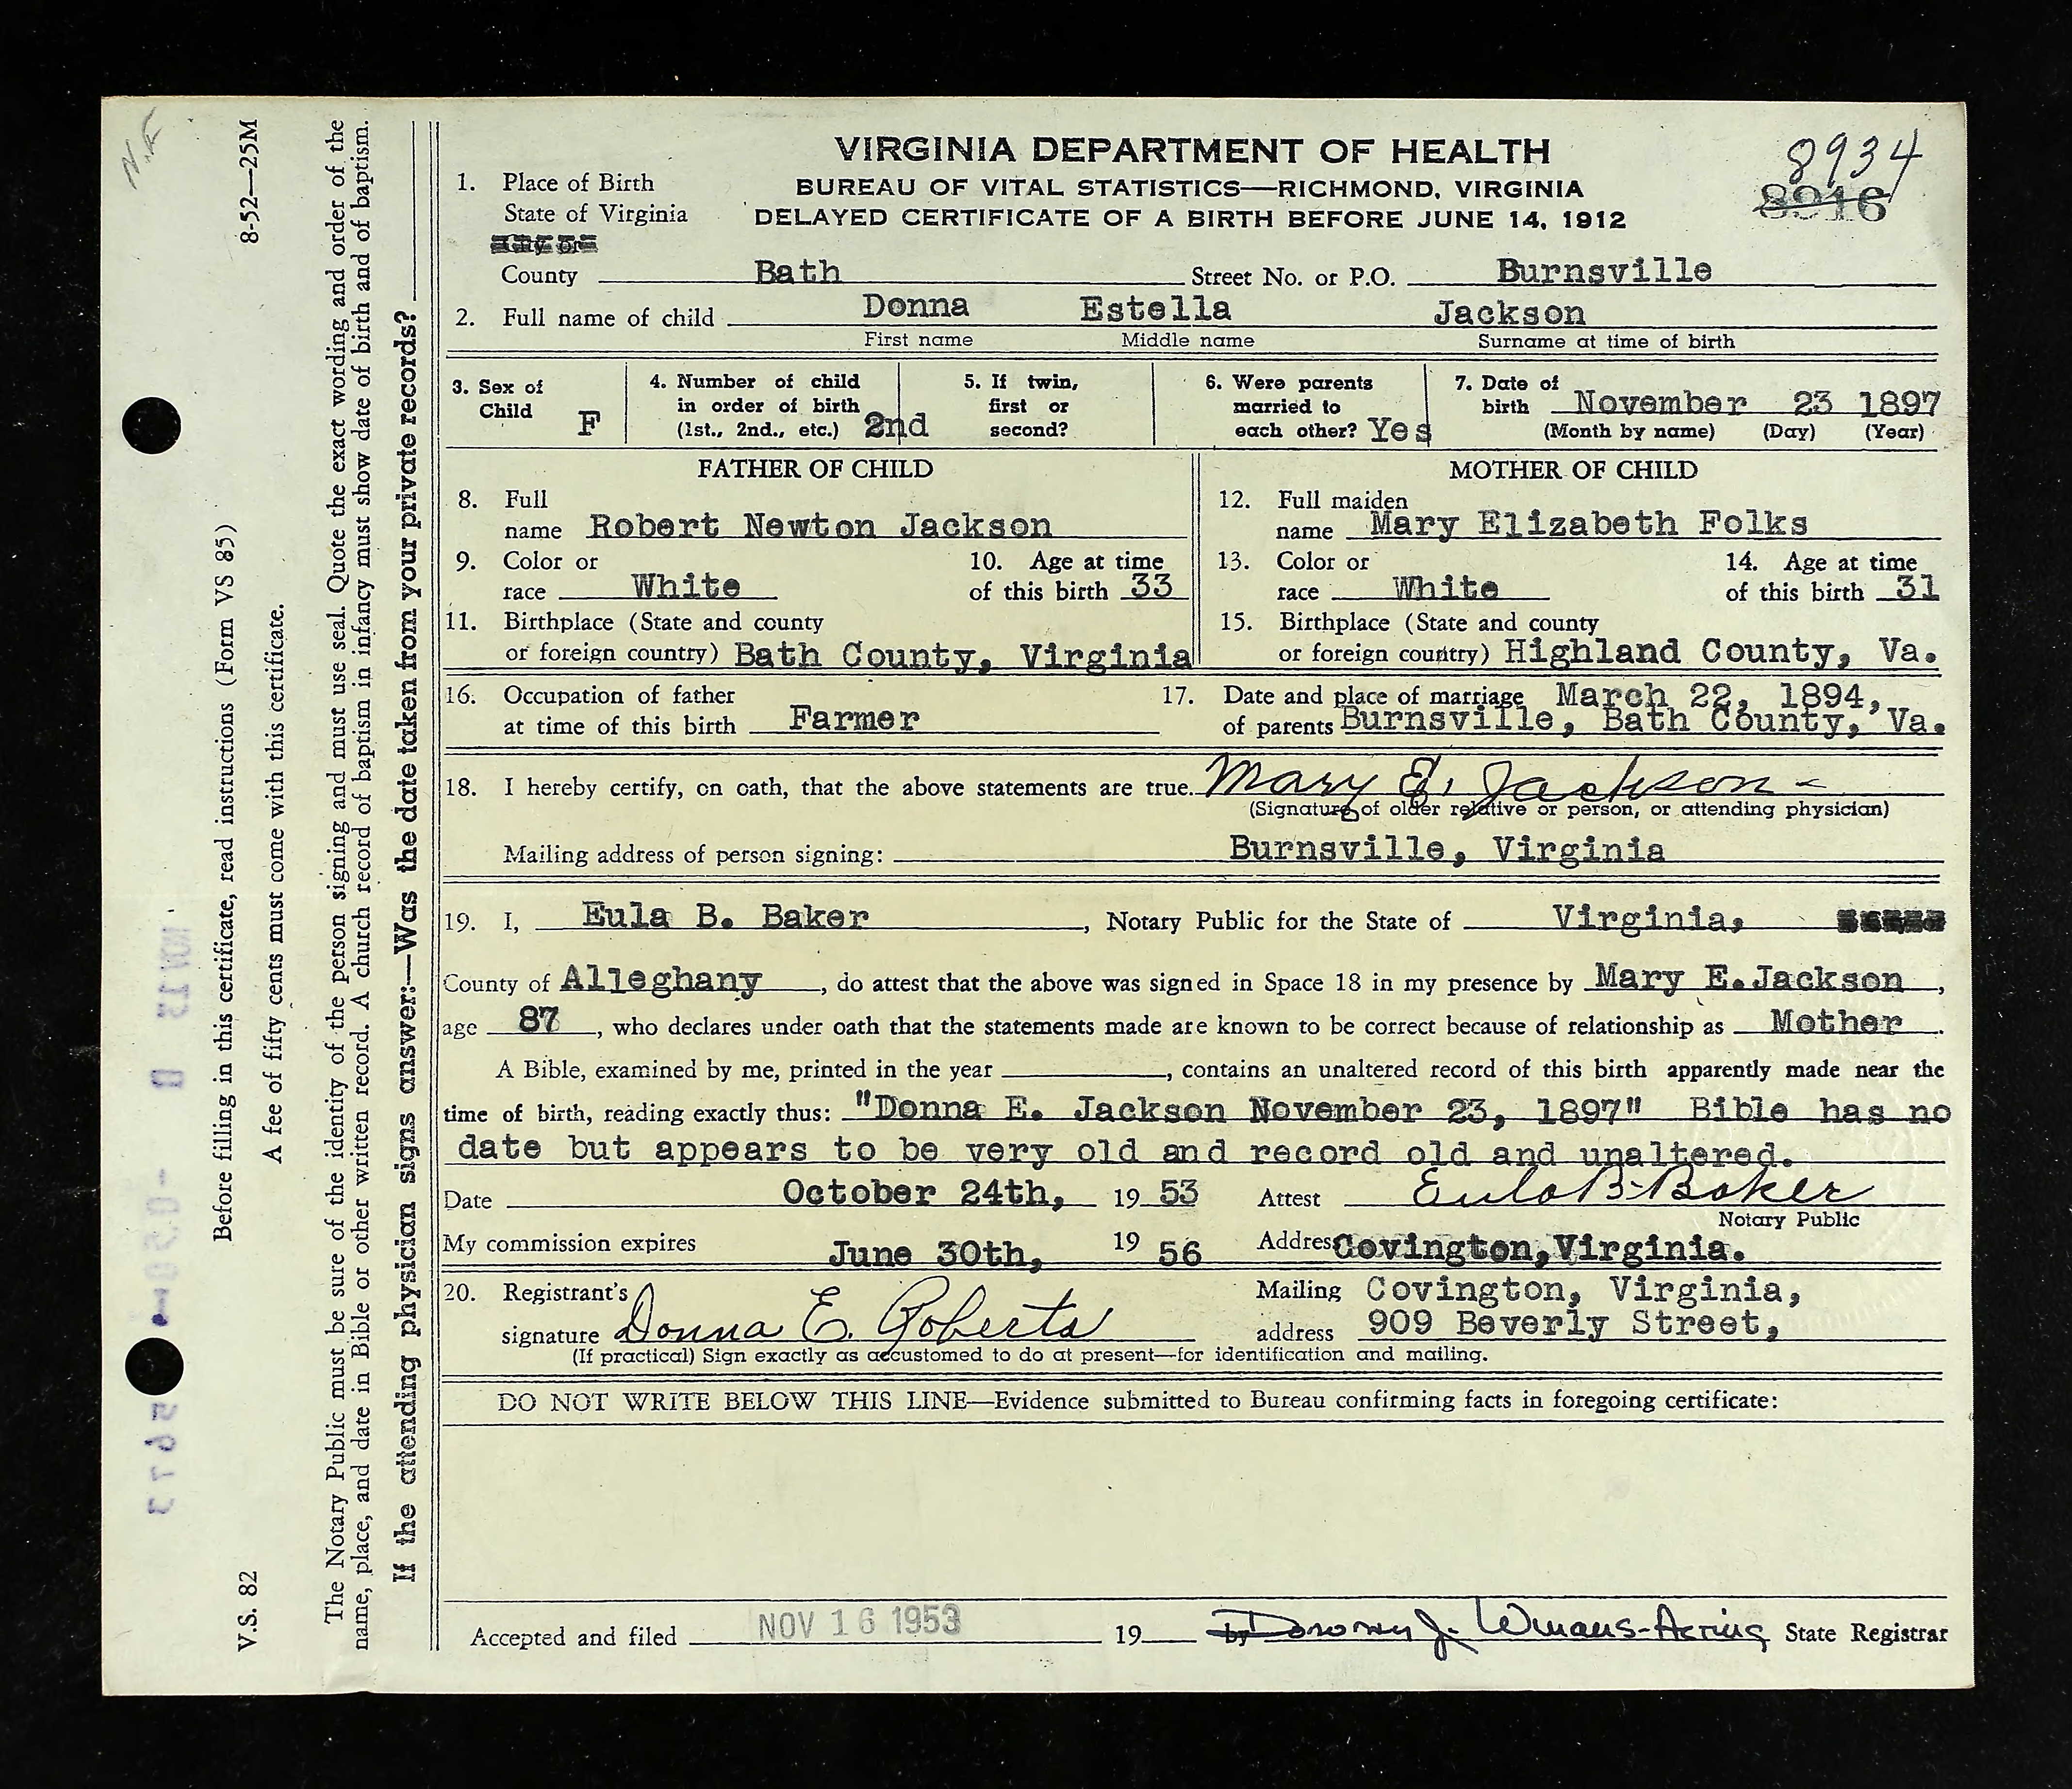 VIRGINIA DEPARTMENT OF HEALTH
BUREAU OF VITAL STATISTICS—RICHMOND, VIRGINIA
DELAYED CERTIFICATE OF A BIRTH BEFORE JUNE 14, 1912
8934
8916
1. Place of Birth
State of Virginia
County Bath Street No. or P.O. Burnsville
2. Full name of child Donna Estella Jackson
First name Middle name Surname at time of birth
3. Sex of Child F
4. Number of child in order of birth (1st., 2nd., etc.) 2nd
5. If twin, first or second?
6. Were parents married to each other? Yes
7. Date of birth November 23 1897
(Month by name) (Day) (Year)
FATHER OF CHILD
8. Full name Robert Newton Jackson
9. Color or race White
10. Age at time of this birth 33
11. Birthplace (State and county or foreign country) Bath County, Virginia
MOTHER OF CHILD
12. Full maiden name Mary Elizabeth Folks
13. Color or race White
14. Age at time of this birth 31
15. Birthplace (State and county or foreign country) Highland County, Va.
16. Occupation of father at time of this birth Farmer
17. Date and place of marriage of parents March 22, 1894, Burnsville, Bath County, Va.
18. I hereby certify, on oath, that the above statements are true. Mary E. Jackson
(Signature of older relative or person, or attending physician)
Mailing address of person signing: Burnsville, Virginia
19. I, Eula B. Baker, Notary Public for the State of Virginia,
County of Alleghany, do attest that the above was signed in Space 18 in my presence by Mary E. Jackson,
age 87, who declares under oath that the statements made are known to be correct because of relationship as Mother.
A Bible, examined by me, printed in the year , contains an unaltered record of this birth apparently made near the
time of birth, reading exactly thus: "Donna E. Jackson November 23, 1897" Bible has no
date but appears to be very old and record old and unaltered.
Date October 24th, 19 53 Attest Eula B. Baker
Notary Public
My commission expires June 30th, 19 56 Address Covington, Virginia.
20. Registrant's signature Donna E. Roberts
Mailing address Covington, Virginia,
909 Beverly Street,
(If practical) Sign exactly as accustomed to do at present—for identification and mailing.
DO NOT WRITE BELOW THIS LINE—Evidence submitted to Bureau confirming facts in foregoing certificate:
Accepted and filed NOV 16 1953 19 by Dorothy J. Winans-Acting State Registrar
V.S. 82
8-52—25M
Before filling in this certificate, read instructions (Form VS 85)
A fee of fifty cents must come with this certificate.
The Notary Public must be sure of the identity of the person signing and must use seal. Quote the exact wording and order of the
name, place, and date in Bible or other written record. A church record of baptism in infancy must show date of birth and of baptism.
If the attending physician signs answer:—Was the date taken from your private records?